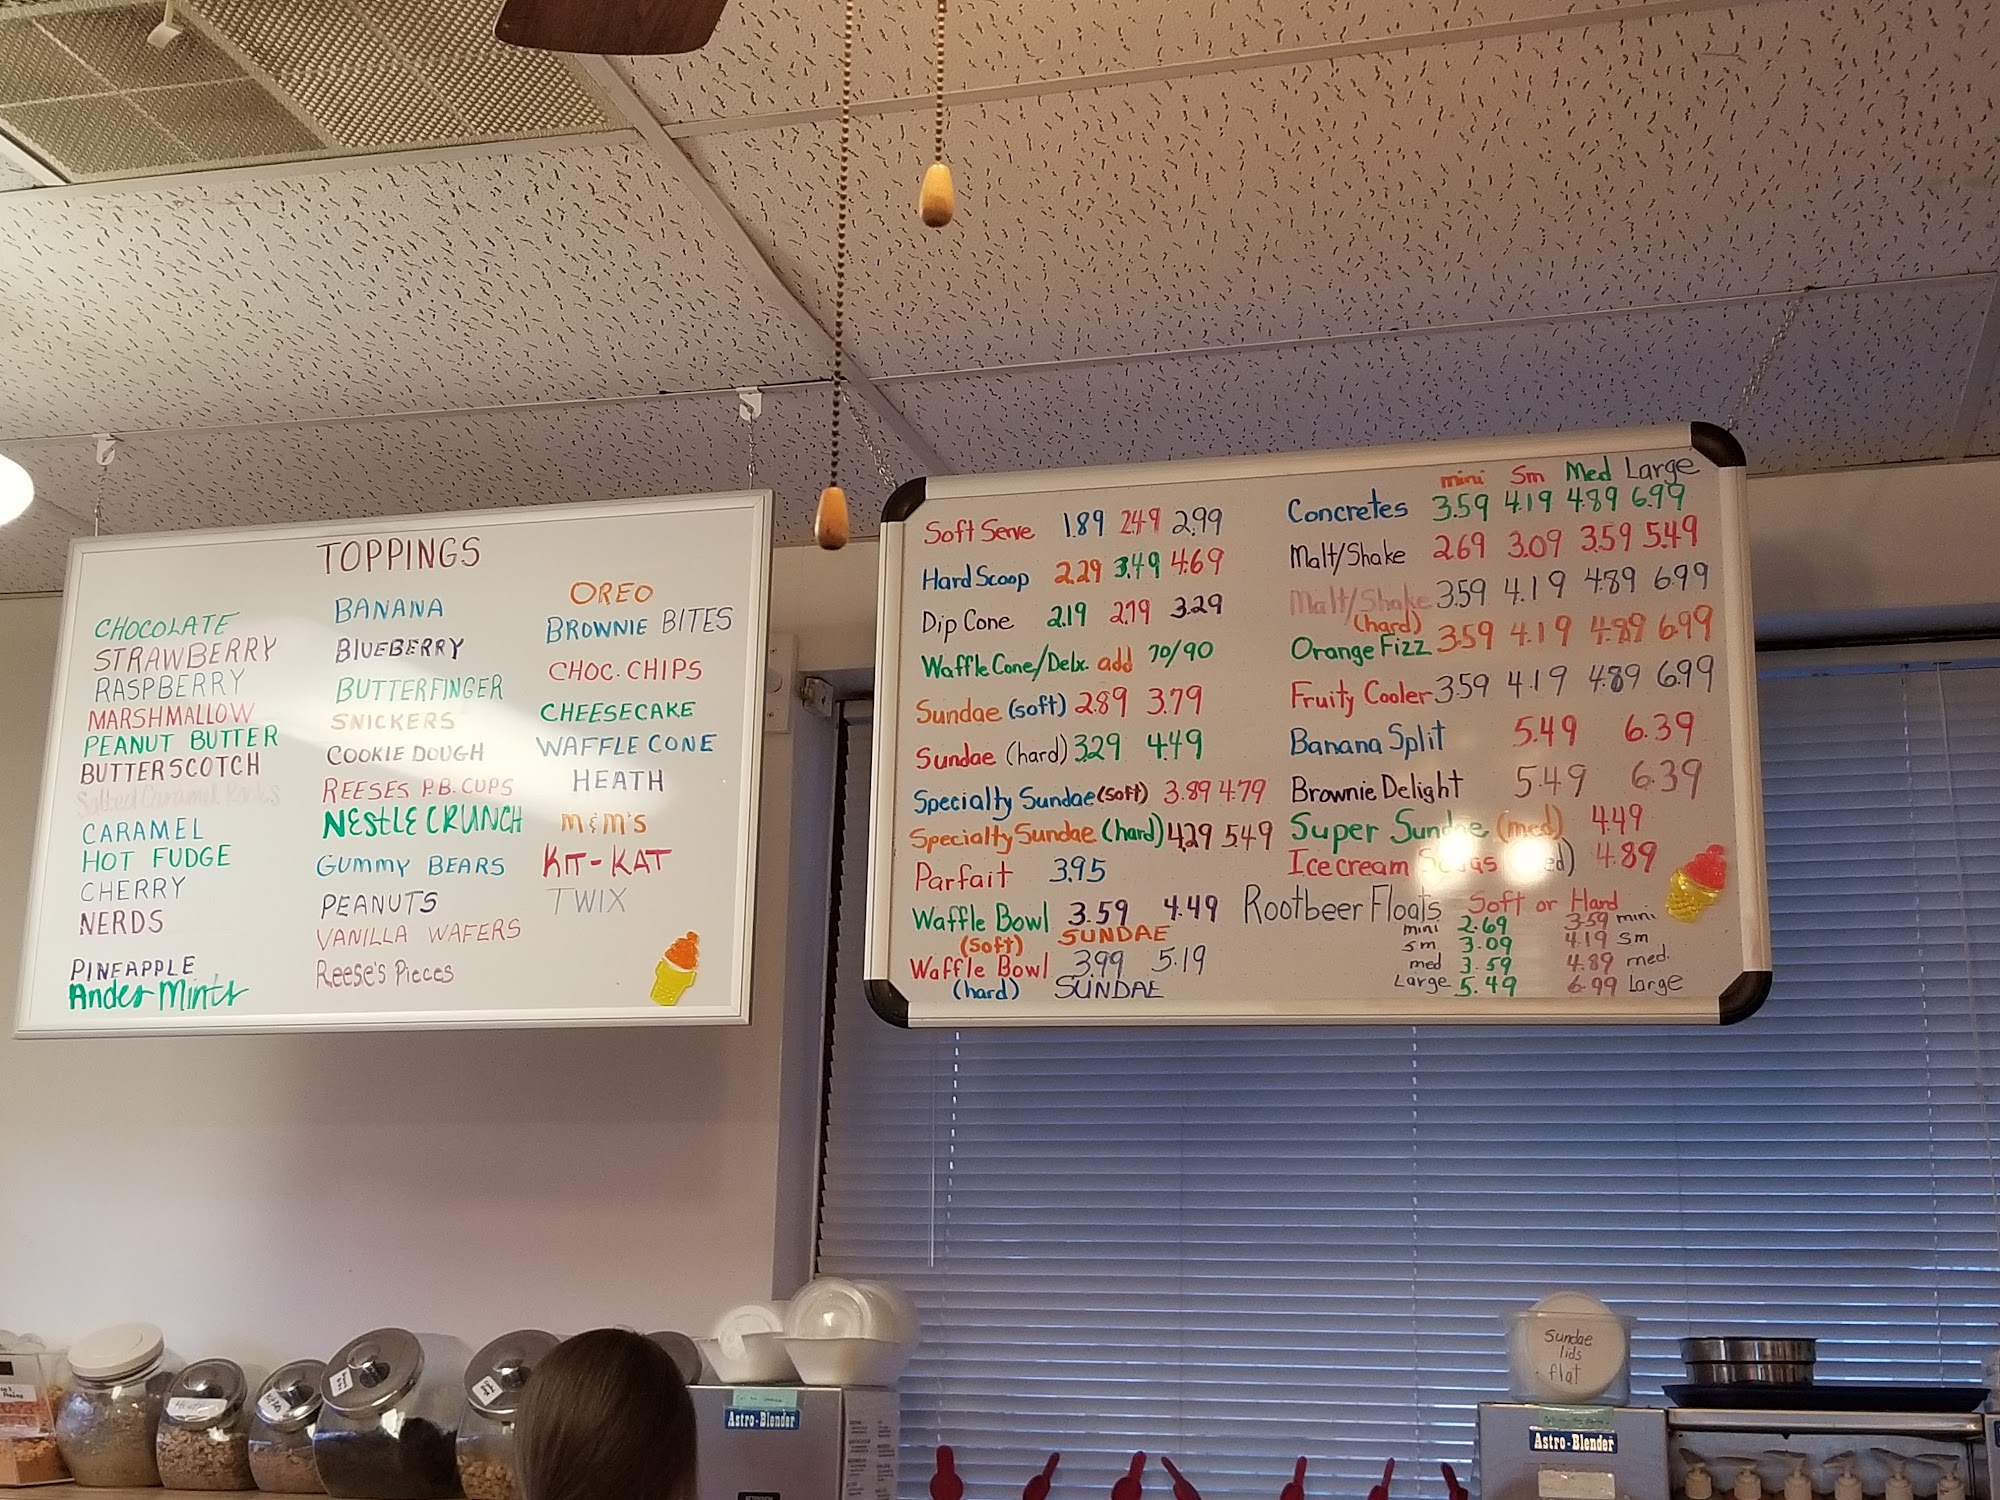 TOPPINGS
CHOCOLATE
STRAWBERRY
RASPBERRY
MARSHMALLOW
PEANUT BUTTER
BUTTERSCOTCH
Salted Caramel
CARAMEL
HOT FUDGE
CHERRY
NERDS
PINEAPPLE
Andes Mints
BANANA
BLUEBERRY
BUTTERFINGER
SNICKERS
COOKIE DOUGH
REESES P.B. CUPS
NESTLE CRUNCH
GUMMY BEARS
PEANUTS
VANILLA WAFERS
Reese's Pieces
OREO
BROWNIE BITES
CHOC. CHIPS
CHEESECAKE
WAFFLE CONE
HEATH
M&M'S
KIT-KAT
TWIX
Soft Serve 1.89 2.49 2.99
Hard Scoop 2.29 3.49 4.69
Dip Cone 2.19 2.79 3.29
Waffle Cone/Delx. add 70/90
Sundae (soft) 2.89 3.79
Sundae (hard) 3.29 4.49
Specialty Sundae (soft) 3.89 4.79
Specialty Sundae (hard) 4.29 5.49
Parfait 3.95
Waffle Bowl 3.59 4.49
(soft) SUNDAE
Waffle Bowl 3.99 5.19
(hard) SUNDAE
mini Sm Med Large
Concretes 3.59 4.19 4.89 6.99
Malt/Shake 2.69 3.09 3.59 5.49
Malt/Shake 3.59 4.19 4.89 6.99
(hard)
Orange Fizz 3.59 4.19 4.89 6.99
Fruity Cooler 3.59 4.19 4.89 6.99
Banana Split 5.49 6.39
Brownie Delight 5.49 6.39
Super Sundae (med) 4.49
Ice cream 4.89
Rootbeer Floats Soft or Hard
mini 2.69 3.59 mini
sm 3.09 4.19 sm
med 3.59 4.89 med.
Large 5.49 6.99 Large
Sundae
lids
flat
Astro-Blender
Astro-Blender